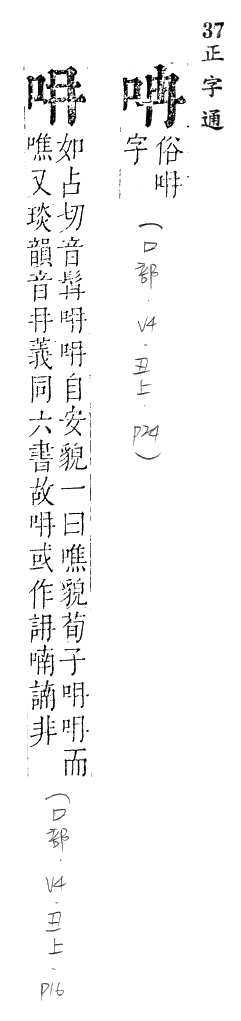 37正字通
俗呥
字
(口部.V4.丑上.p24)
呥
如占切音髥呥呥自安貌一曰噍貌荀子呥呥而
噍又琰韻音冉義同六書故呥或作䛁喃諵非
(口部.V4.丑上.p16)